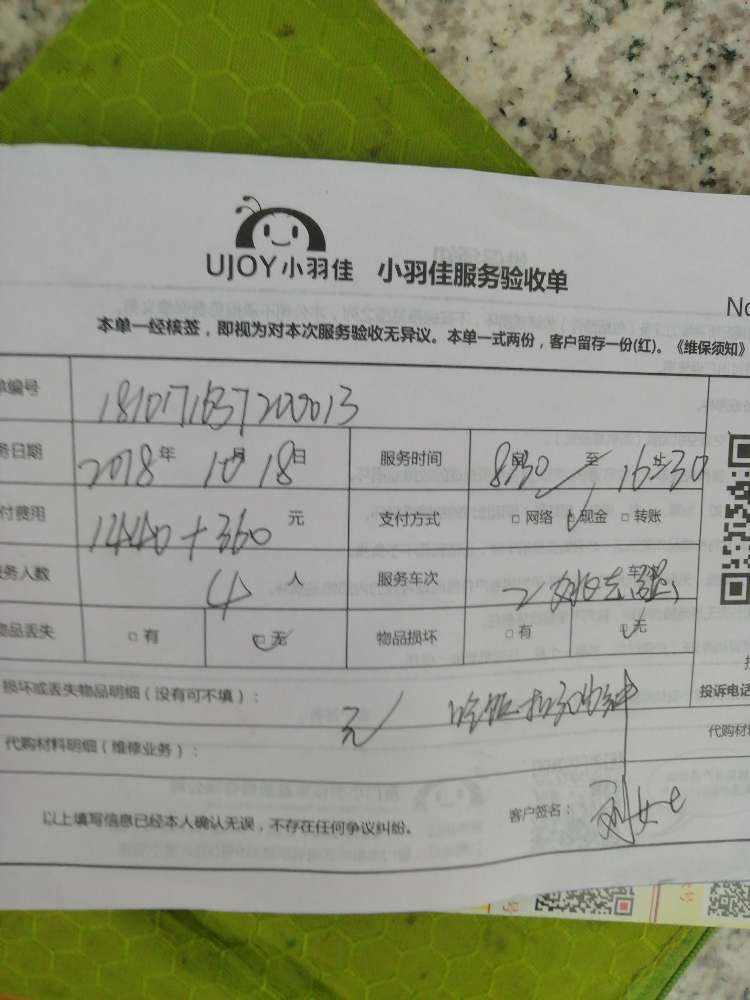 UJOY小羽佳 小羽佳服务验收单
No
本单一经核签，即视为对本次服务验收无异议。本单一式两份，客户留存一份(红)。《维保须知》
单编号 181017163720013
务日期 2018年10月18日 服务时间 8:30至16:30
付费用 1440+360元 支付方式 □网络 □现金 □转账
务人数 4人 服务车次 2 车
物品丢失 □有 □无 物品损坏 □有 □无
损坏或丢失物品明细（没有可不填）： 无 吃饭扣30分钟
投诉电话
代购材料明细（维修业务）：
代购材
以上填写信息已经本人确认无误，不存在任何争议纠纷。 客户签名： 刘女士